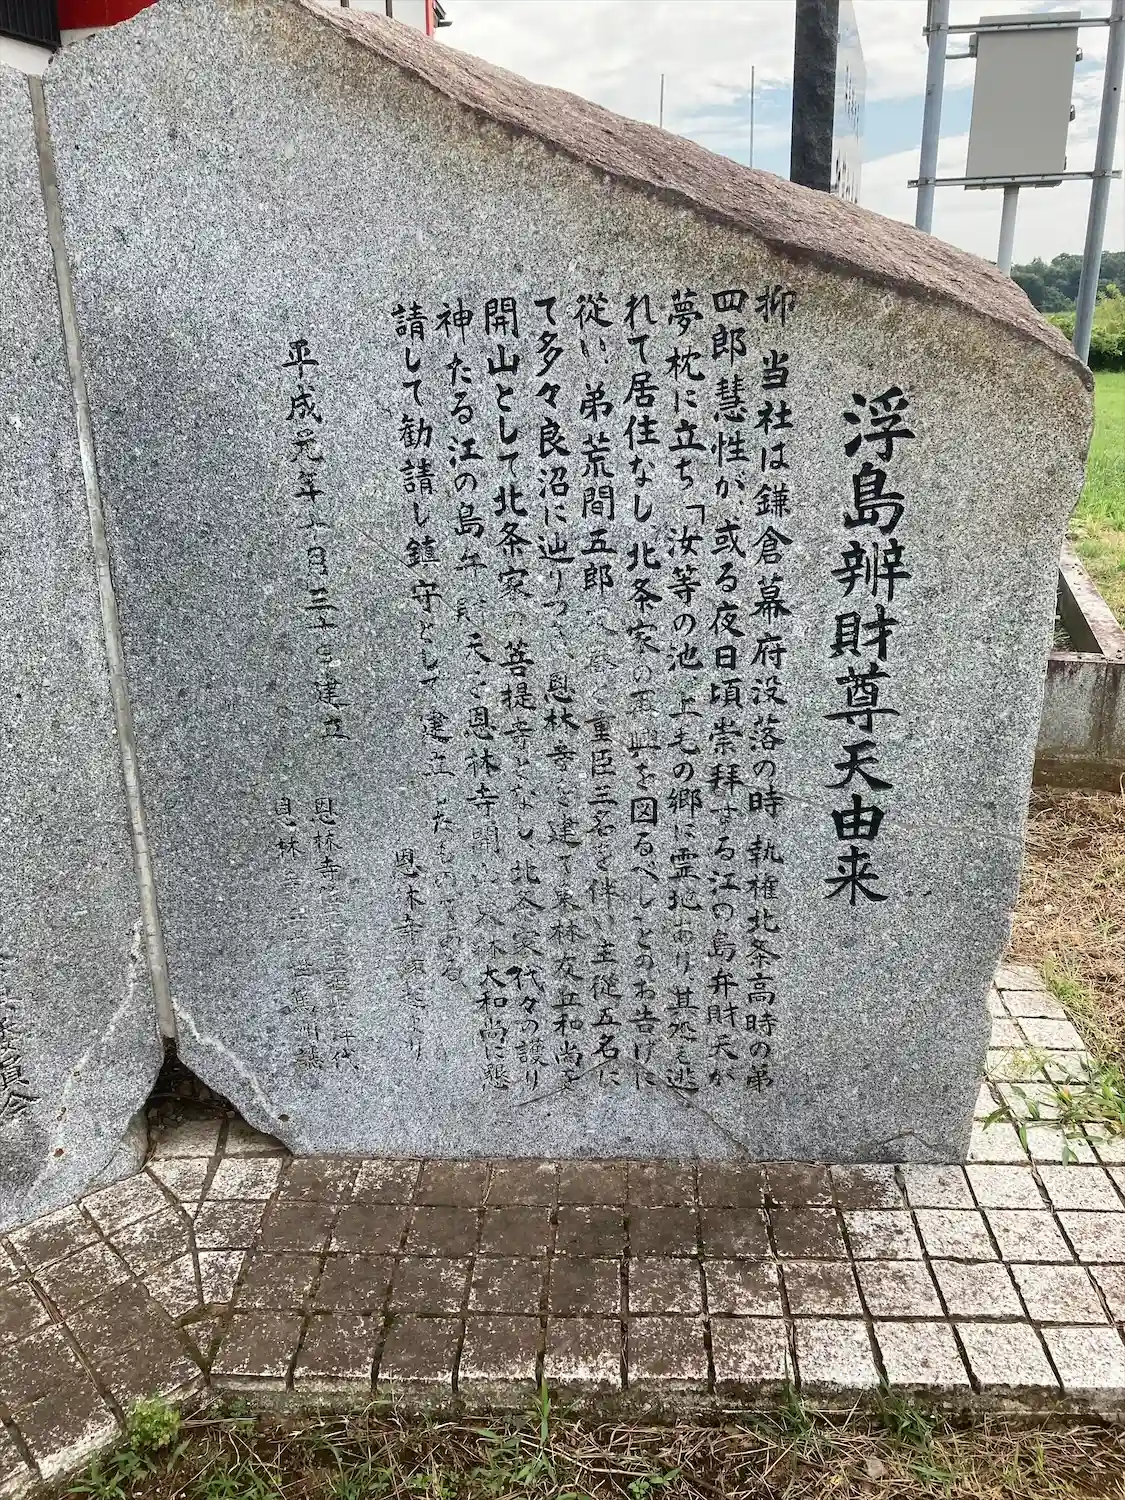 浮島辨財尊天由来
抑 当社は鎌倉幕府没落の時 執権北条高時の弟
四郎慧性が、或る夜日頃崇拝する江の島弁財天が
夢枕に立ち「汝等の池、上毛の郷に霊地あり其処を逃
れて居住なし、北条家の再興を図るべし」とのお告げに
従い、弟荒間五郎 重臣三名を伴い主従五名に
て多々良沼に辿りつき、恩林寺を建て 林友丘和尚を
開山として北条家の菩提寺となし、北条家代々の護り
神たる江の島弁財天を恩林寺開山 大和尚に懇
請して勧請し鎮守として建立したものである
恩林寺 より
平成元年十月三十日建立
恩林寺
恩林寺